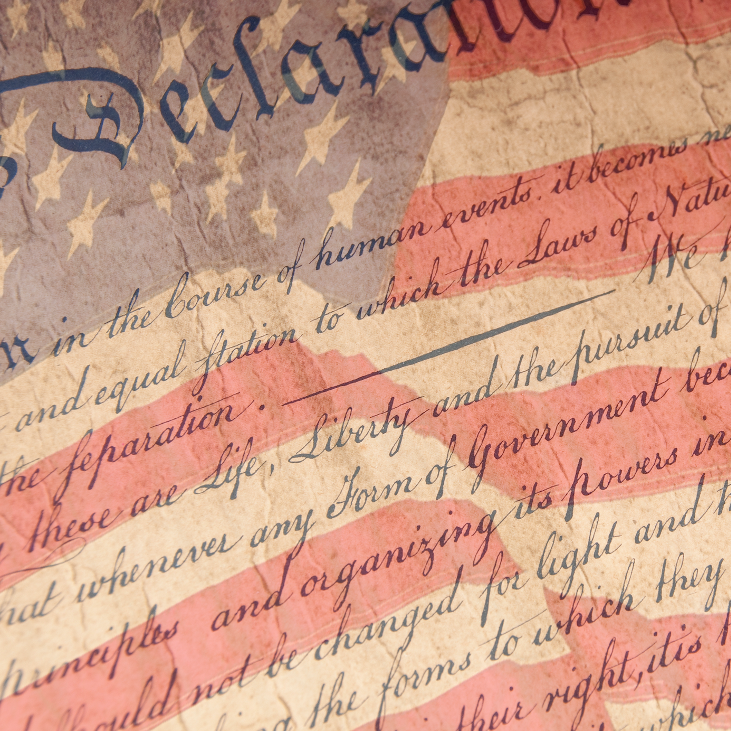 Declaration
in the Course of human events. it becomes
and equal ſtation to which the Laws of
the ſeparation. We
these are Life, Liberty and the pursuit of
whenever any Form of Government
principles and organizing its powers in
not be changed for light and
the forms to which they
their right, it is
which